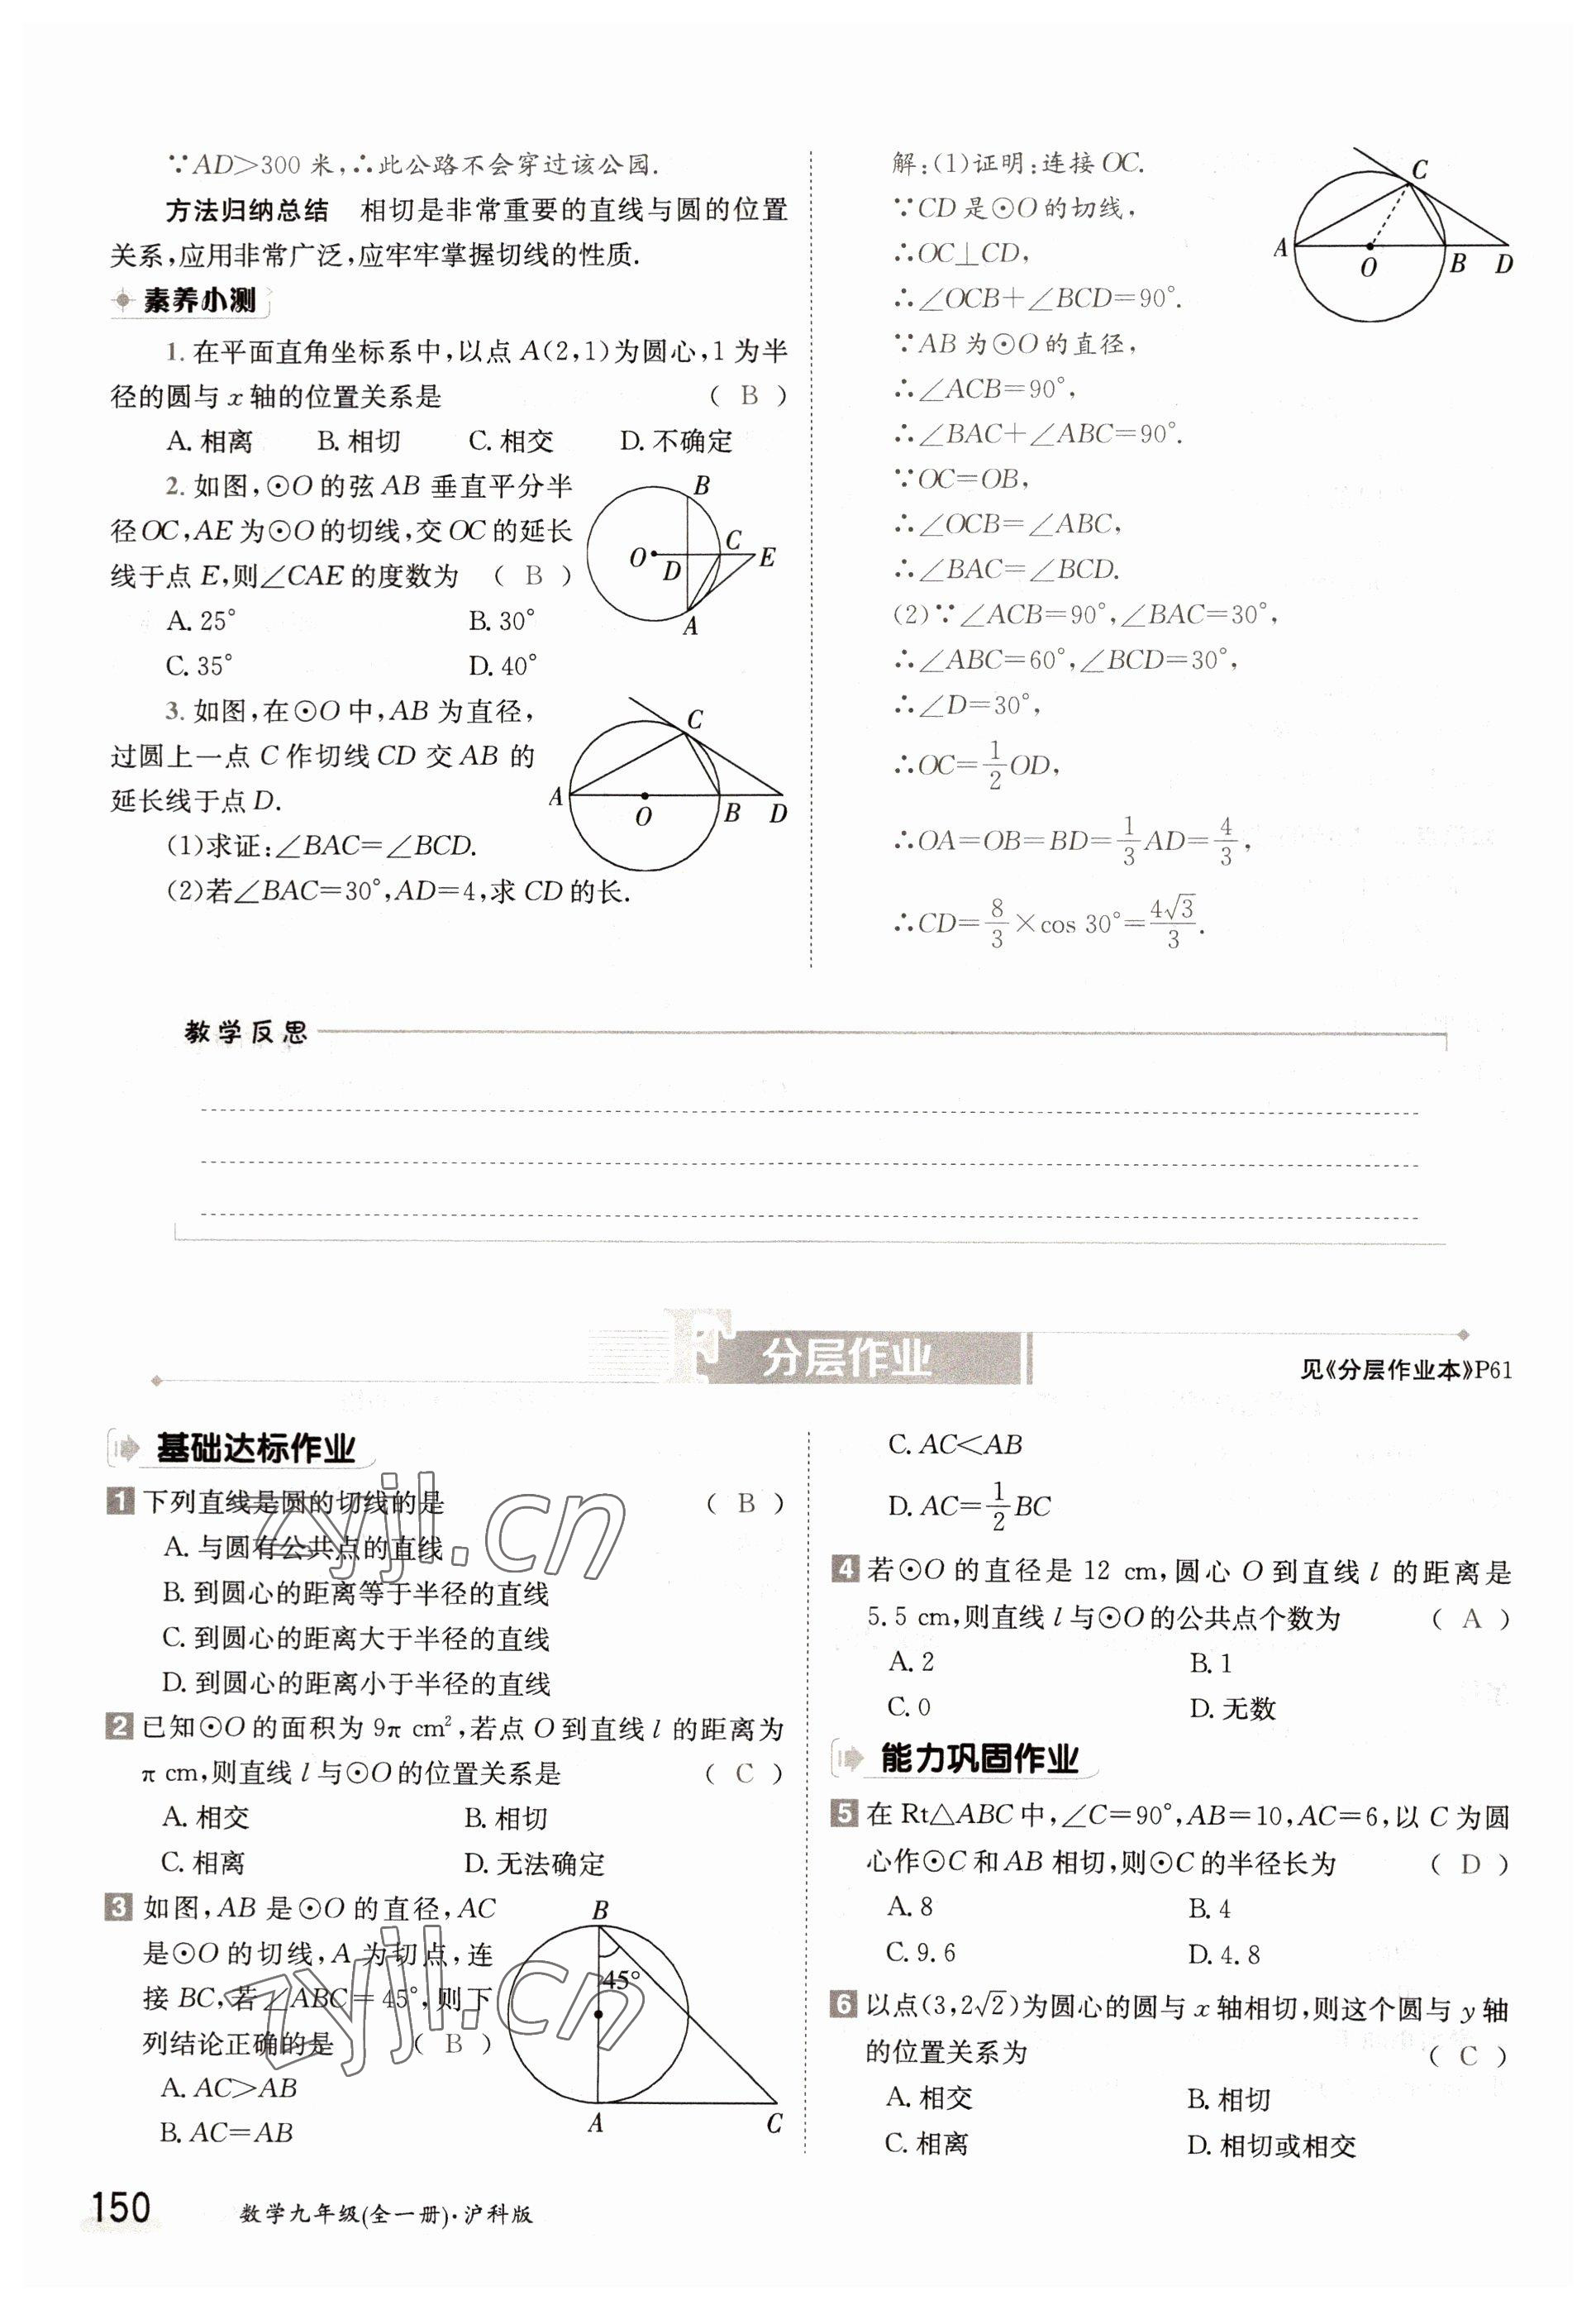 ∵AD>300 米,∴此公路不会穿过该公园.
方法归纳总结　相切是非常重要的直线与圆的位置
关系,应用非常广泛,应牢牢掌握切线的性质.
素养小测
1. 在平面直角坐标系中,以点 A(2,1)为圆心,1 为半
径的圆与 x 轴的位置关系是 ( B )
A. 相离 B. 相切 C. 相交 D. 不确定
2. 如图,⊙O 的弦 AB 垂直平分半
径 OC,AE 为⊙O 的切线,交 OC 的延长
线于点 E,则∠CAE 的度数为 ( B )
A. 25° B. 30°
C. 35° D. 40°
B
O
D
C
E
A
3. 如图,在⊙O 中,AB 为直径,
过圆上一点 C 作切线 CD 交 AB 的
延长线于点 D.
(1)求证:∠BAC=∠BCD.
(2)若∠BAC=30°,AD=4,求 CD 的长.
C
A
O
B
D
解:(1)证明:连接 OC.
∵CD 是⊙O 的切线,
∴OC⊥CD,
∴∠OCB+∠BCD=90°.
∵AB 为⊙O 的直径,
∴∠ACB=90°,
∴∠BAC+∠ABC=90°.
∵OC=OB,
∴∠OCB=∠ABC,
∴∠BAC=∠BCD.
(2)∵∠ACB=90°,∠BAC=30°,
∴∠ABC=60°,∠BCD=30°,
∴∠D=30°,
∴OC=1/2 OD,
∴OA=OB=BD=1/3 AD=4/3,
∴CD=8/3×cos 30°=4√3/3.
C
A
O
B
D
教学反思
F 分层作业
见《分层作业本》P61
基础达标作业
1 下列直线是圆的切线的是 ( B )
A. 与圆有公共点的直线
B. 到圆心的距离等于半径的直线
C. 到圆心的距离大于半径的直线
D. 到圆心的距离小于半径的直线
2 已知⊙O 的面积为 9π cm²,若点 O 到直线 l 的距离为
π cm,则直线 l 与⊙O 的位置关系是 ( C )
A. 相交 B. 相切
C. 相离 D. 无法确定
3 如图,AB 是⊙O 的直径,AC
是⊙O 的切线,A 为切点,连
接 BC,若∠ABC=45°,则下
列结论正确的是 ( B )
A. AC>AB
B. AC=AB
B
45°
A
C
C. AC<AB
D. AC=1/2 BC
4 若⊙O 的直径是 12 cm,圆心 O 到直线 l 的距离是
5.5 cm,则直线 l 与⊙O 的公共点个数为 ( A )
A. 2 B. 1
C. 0 D. 无数
能力巩固作业
5 在 Rt△ABC 中,∠C=90°,AB=10,AC=6,以 C 为圆
心作⊙C 和 AB 相切,则⊙C 的半径长为 ( D )
A. 8 B. 4
C. 9.6 D. 4.8
6 以点(3,2√2)为圆心的圆与 x 轴相切,则这个圆与 y 轴
的位置关系为 ( C )
A. 相交 B. 相切
C. 相离 D. 相切或相交
zyjl.cn
zyjl.cn
150 数学九年级(全一册)·沪科版